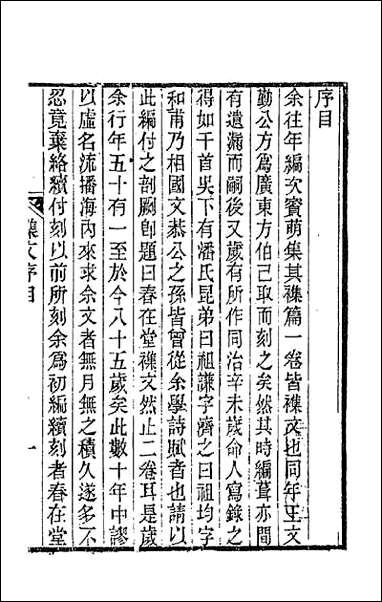 序目
余往年編次賓萌集其襍篇一卷皆襍文也同年王文
勤公方爲廣東方伯已取而刻之矣然其時編葺亦間
有遺漏而嗣後又歲有所作同治辛未歲命人寫錄之
得如千首吳下有潘氏昆弟曰祖謙字濟之曰祖均字
和甫乃相國文恭公之孫皆曾從余學詩賦者也請以
此編付之剞劂卽題曰春在堂襍文然止二卷耳是歲
余行年五十有一至於今八十五歲矣此數十年中謬
以虛名流播海內來求余文者無月無之積久遂多不
忍竟棄絡續付刻以前所刻余爲初編續刻者春在堂
襍文序目
一